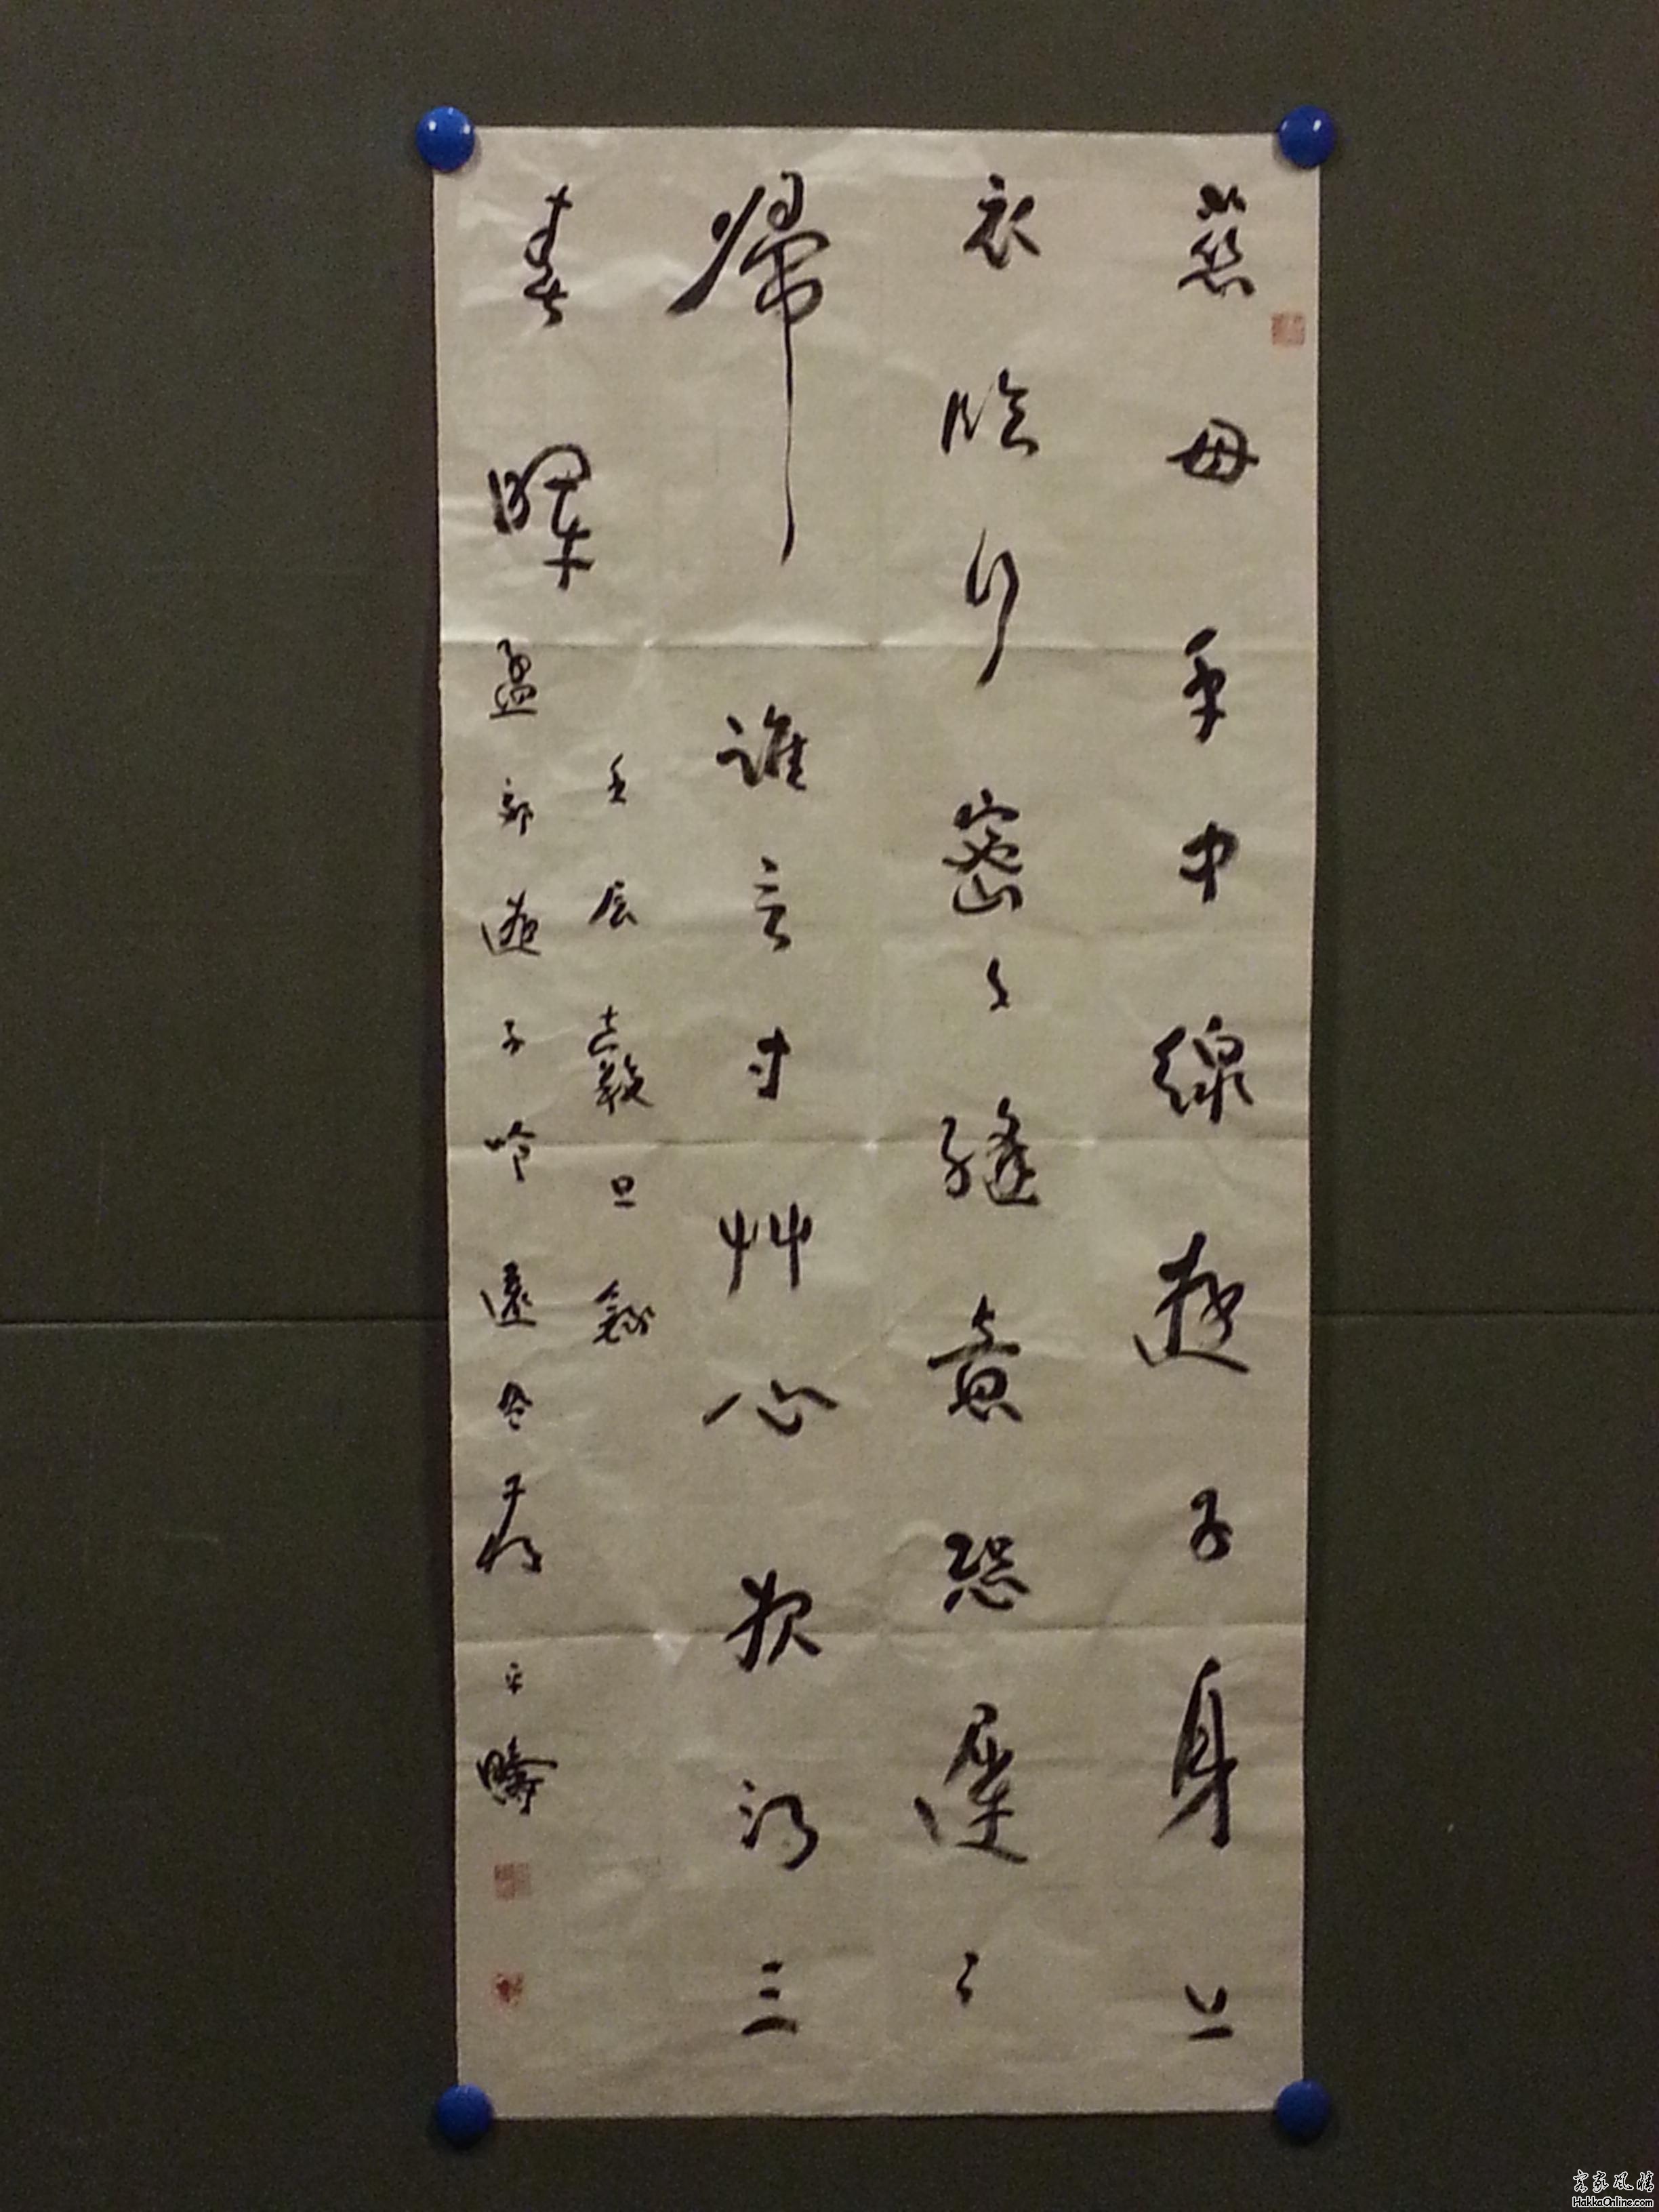 慈母手中線遊子身上
衣臨行密〻縫意恐遲〻
歸誰言寸艸心報得三
春暉
壬辰穀旦錄
孟郊遊子吟
客家風情
HakkaOnline.com